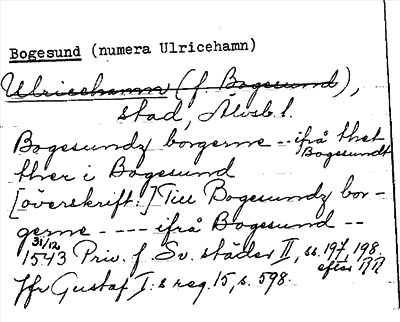 Bogesund (numera Ulricehamn)
Ulricehamn (f Bogesund),
stad, Älvsb. l.
Bogesundz borgerne -- ifrå thet
Bogesundt
ther i Bogesund
[överskrift:] Till Bogesundz bor-
gerne ---- ifrå Bogesund --
31/12
1543 Priv. f Sv. städer II, ss. 197, 198.
efter RR
Jfr Gustaf I:s reg. 15, s. 598.